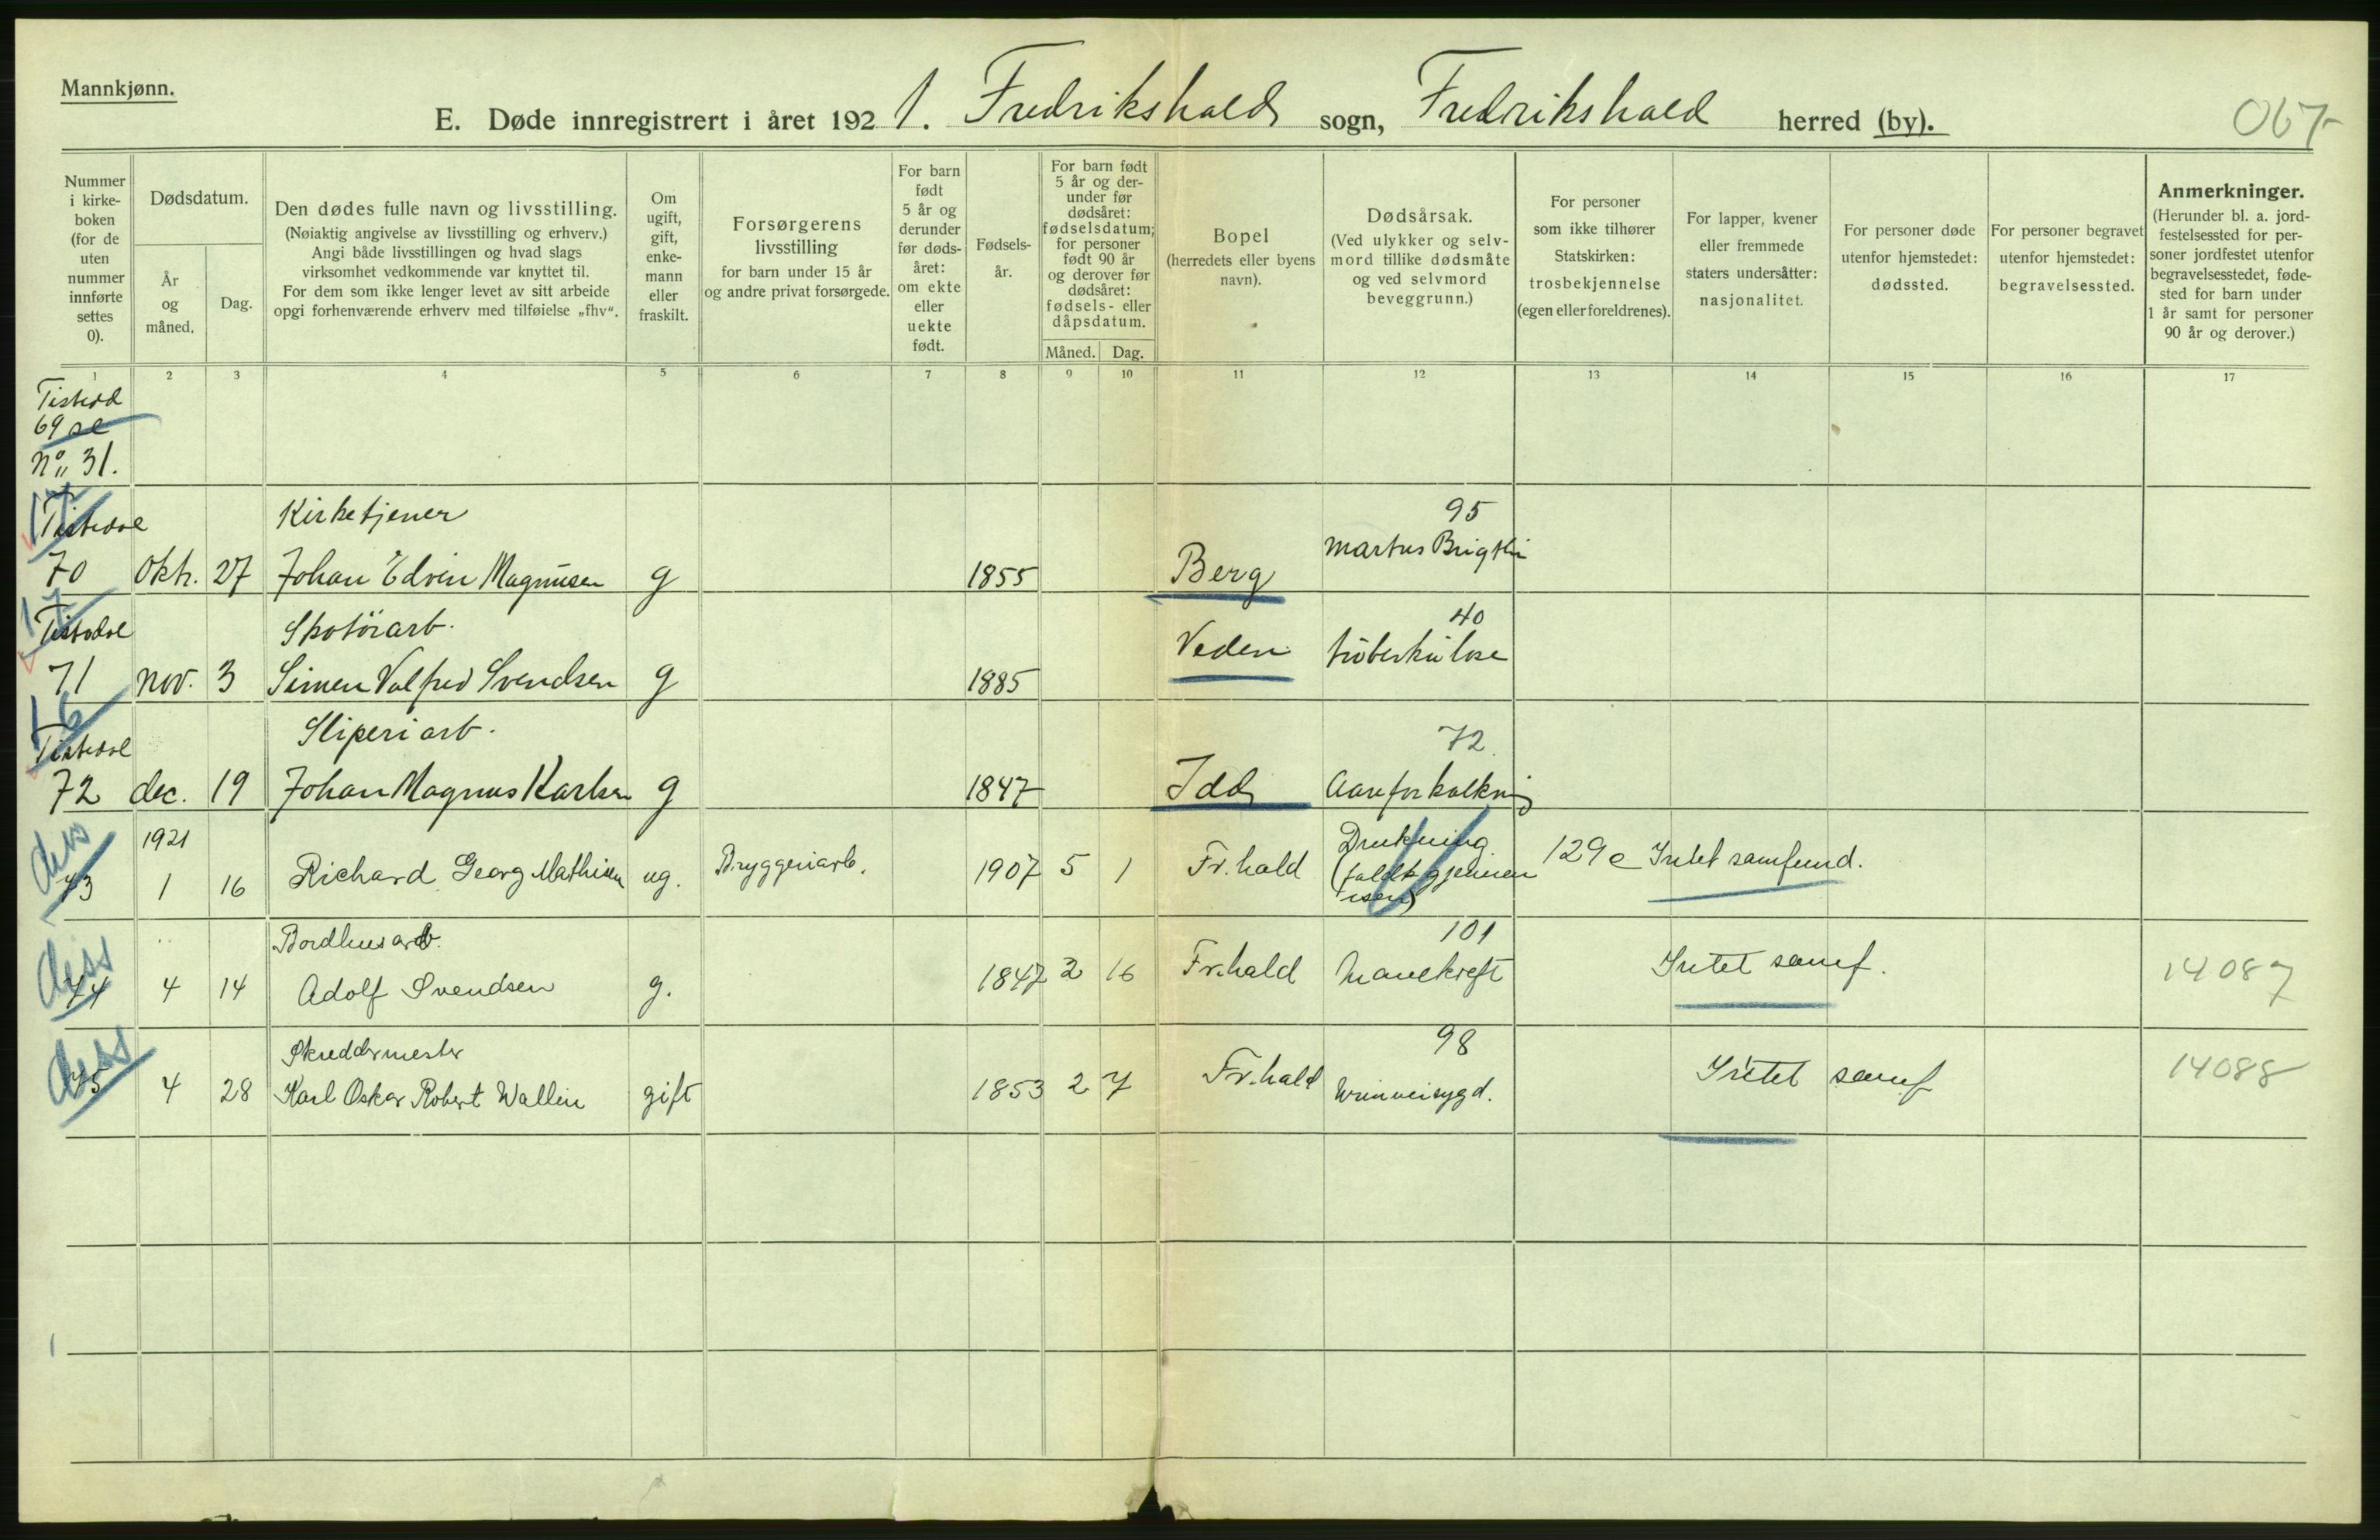 Mannkjønn.
E. Døde innregistrert i året 1921. Fredrikshald sogn, Fredrikshald herred (by).
067
Nummer i kirke-boken (for de uten nummer innførte settes 0).
Dødsdatum.
År og måned.
Dag.
Den dødes fulle navn og livsstilling.
(Nøiaktig angivelse av livsstilling og erhverv.)
Angi både livsstillingen og hvad slags
virksomhet vedkommende var knyttet til.
For dem som ikke lenger levet av sitt arbeide
opgi forhenværende erhverv med tilføielse „fhv“.
Om ugift, gift, enke-mann eller fraskilt.
Forsørgerens livsstilling
for barn under 15 år
og andre privat forsørgede.
For barn født 5 år og derunder før døds-året: om ekte eller uekte født.
Fødsels-år.
For barn født 5 år og der-under før dødsåret: fødselsdatum; for personer født 90 år og derover før dødsåret: fødsels- eller dåpsdatum.
Måned.
Dag.
Bopel
(herredets eller byens navn).
Dødsårsak.
(Ved ulykker og selv-mord tillike dødsmåte og ved selvmord beveggrunn.)
For personer som ikke tilhører Statskirken: trosbekjennelse (egen eller foreldrenes).
For lapper, kvener eller fremmede staters undersåtter: nasjonalitet.
For personer døde utenfor hjemstedet: dødssted.
For personer begravet utenfor hjemstedet: begravelsessted.
Anmerkninger.
(Herunder bl. a. jord-festelsessted for per-soner jordfestet utenfor begravelsesstedet, føde-sted for barn under 1 år samt for personer 90 år og derover.)
1 2 3 4 5 6 7 8 9 10 11 12 13 14 15 16 17
69 se
No 31.
Kirketjener 95
70 Okt. 27 Johan Edvin Magnusen g 1855 Berg Marbus Brigthii
Skotöiarb. 40
71 nov. 3 Simen Valfred Svendsen g 1885 Veden tuberkulose
Sliperiarb. 72
72 dec. 19 Johan Magnus Karlsen g 1847 Idd Aareforkalkning
1921
73 1 16 Richard Georg Mathisen ug. Bryggeriarb. 1907 5 1 Fr.hald Drukning (faldt gjennem isen) 129e Intet samfund.
Bordhusarb. 101
74 4 14 Adolf Svendsen g. 1847 2 16 Fr.hald Mavekreft Intet samf. 14087
Skreddermester 98
75 4 28 Karl Oskar Robert Wallin gift 1853 2 7 Fr.hald Urinveisygd. Intet samf 14088